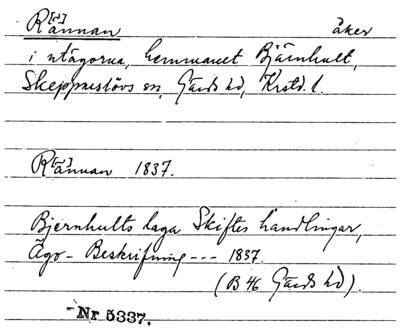 R[ä]annan åker
i utägorna, hemmanet Bjärnhult,
Skepparslövs sn, Gärds hd, Krstd. l.
R[ä]annan 1837.
Bjernhults laga Skiftes handlingar,
Ägo-Beskrifning --- 1837
(B 46 Gärds hd).
Nr 5337.